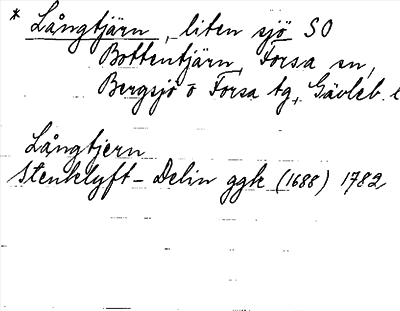 * Långtjärn, liten sjö SO
Bottentjärn, Forsa sn,
Bergsjö o Forsa tg, Gävleb. l
Långtjern
Stenklyft - Delin ggk (1688) 1782